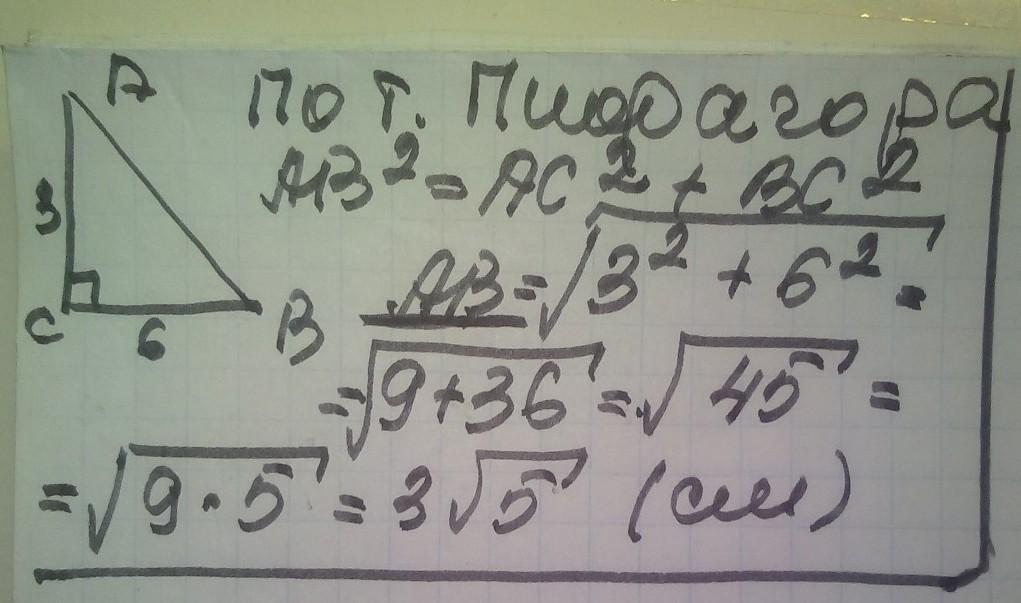 A
3
C
6
B
По т. Пифагора
AB² = AC² + BC²
AB = √3² + 6² =
= √9+36 = √45 =
= √9·5 = 3√5 (см)